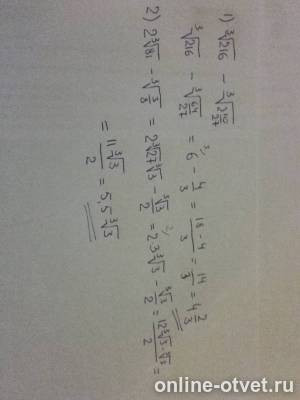 1) ∛216 − ∛(2 10/27)
∛216 − ∛(64/27) = 6 − 4/3 = (18−4)/3 = 14/3 = 4 2/3
2) 2∛81 − ∛(3/8) = 2∛27∛3 − ∛3/2 = 2·3∛3 − ∛3/2 = (12∛3 − ∛3)/2 =
= 11∛3/2 = 5,5∛3
online-otvet.ru